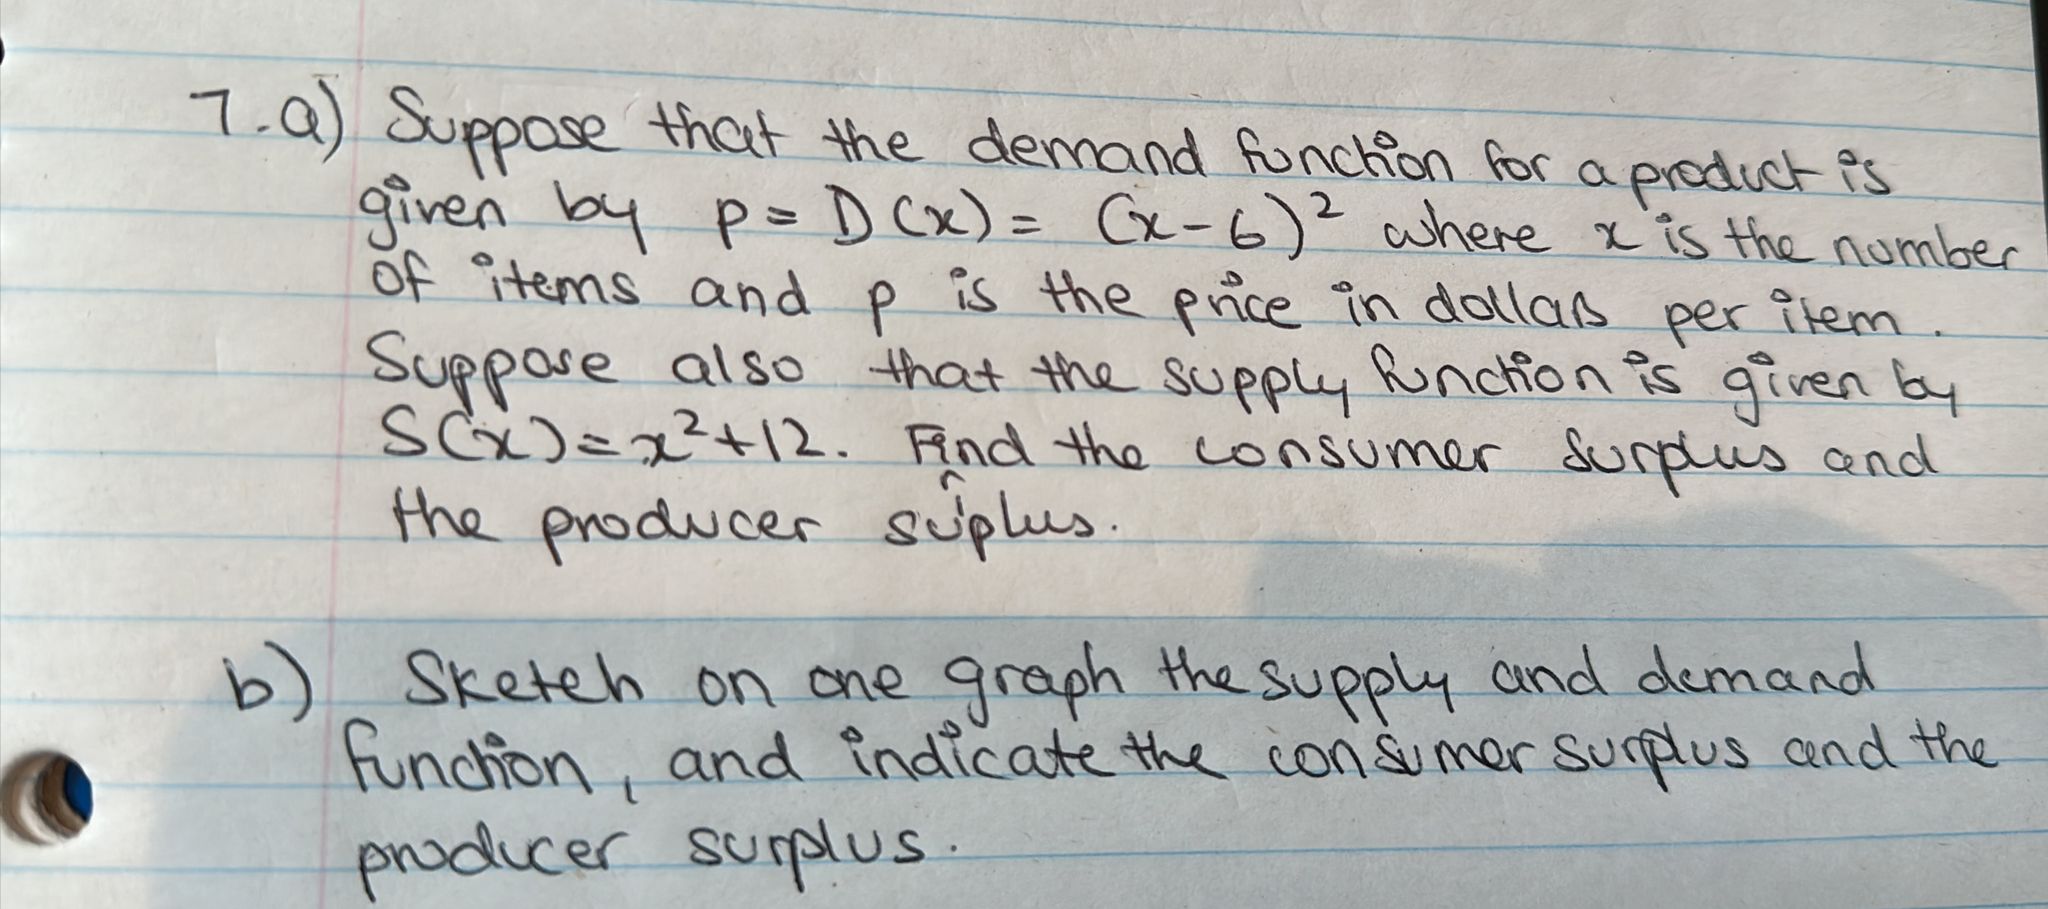 7.a) Suppose that the demand function for a product is
given by p = D(x) = (x-6)² where x is the number
of items and p is the price in dollars per item.
Suppose also that the supply function is given by
S(x) = x²+12. Find the consumer surplus and
the producer surplus.
b) Sketch on one graph the supply and demand
function, and indicate the consumer surplus and the
producer surplus.